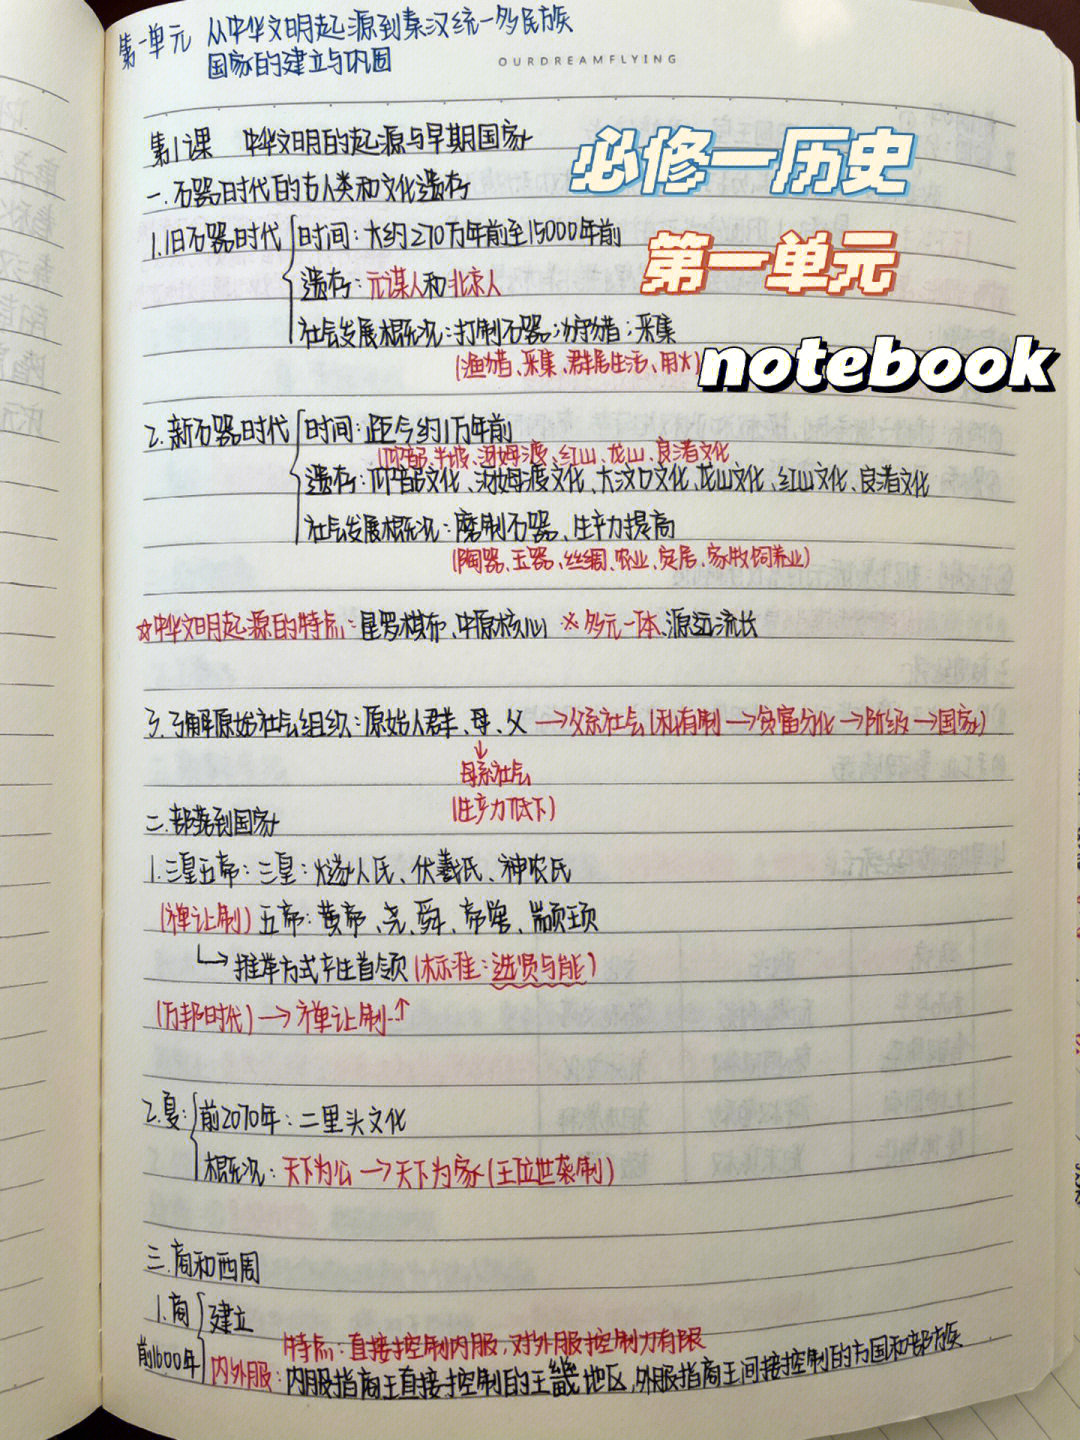 第一单元 从中华文明起源到秦汉统一多民族
国家的建立与巩固
OURDREAMFLYING
必修一历史
第一单元
notebook
第1课 中华文明的起源与早期国家
一.石器时代的古人类和文化遗存
1.旧石器时代 时间:大约270万年前至15000年前
遗存:元谋人和北京人
社会发展概况:打制石器;狩猎;采集
(渔猎、采集、群居生活、用火)
2.新石器时代 时间:距今约1万年前
仰韶、半坡、河姆渡、红山、龙山、良渚文化
遗存:仰韶文化、河姆渡文化、大汶口文化、龙山文化、红山文化、良渚文化
社会发展概况:磨制石器、生产力提高
(陶器、玉器、丝绸、农业、定居、家牧饲养业)
☆中华文明起源的特点:星罗棋布、中原核心 ※多元一体、源远流长
3.了解原始社会组织:原始人群、母、父→父系社会(私有制→贫富分化→阶级→国家)
↓
母系社会
(生产力低下)
二.部落到国家
1.三皇五帝:三皇:燧人氏、伏羲氏、神农氏
(禅让制) 五帝:黄帝、尧、舜、帝喾、颛顼
↳推举方式产生首领(标准:选贤与能)
(万邦时代)→禅让制↑
2.夏: 前2070年:二里头文化
概况:天下为公→天下为家(王位世袭制)
三.商和西周
1.商 建立
特点:直接控制内服,对外服控制力有限
前1600年 内外服:内服指商王直接控制的王畿地区,外服指商王间接控制的方国和部族